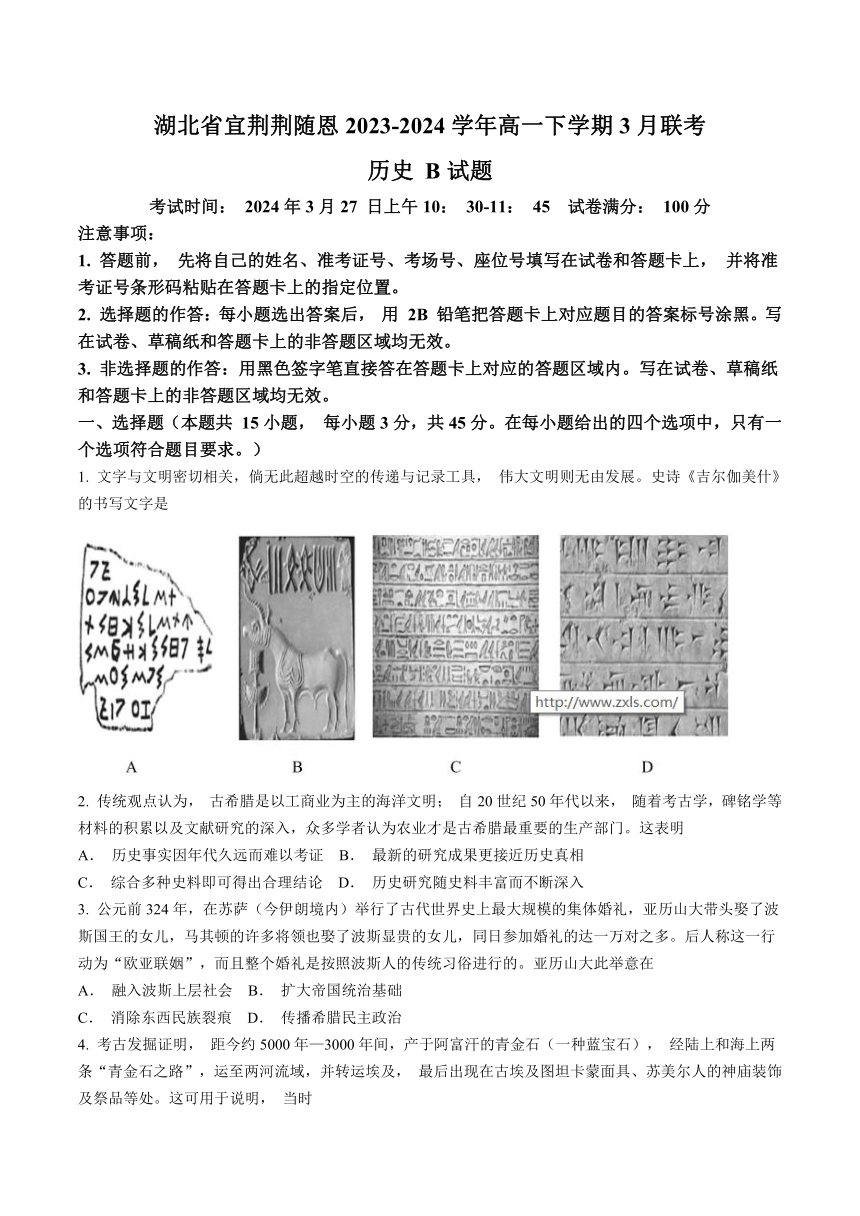 湖北省宜荆荆随恩 2023-2024 学年高一下学期 3 月联考
历史 B 试题
考试时间： 2024 年 3 月 27 日上午 10： 30-11： 45 试卷满分： 100 分
注意事项：
1. 答题前， 先将自己的姓名、准考证号、考场号、座位号填写在试卷和答题卡上， 并将准
考证号条形码粘贴在答题卡上的指定位置。
2. 选择题的作答：每小题选出答案后， 用 2B 铅笔把答题卡上对应题目的答案标号涂黑。写
在试卷、草稿纸和答题卡上的非答题区域均无效。
3. 非选择题的作答：用黑色签字笔直接答在答题卡上对应的答题区域内。写在试卷、草稿纸
和答题卡上的非答题区域均无效。
一、选择题（本题共 15 小题， 每小题 3 分，共 45 分。在每小题给出的四个选项中，只有一
个选项符合题目要求。）
1. 文字与文明密切相关，倘无此超越时空的传递与记录工具， 伟大文明则无由发展。史诗《吉尔伽美什》
的书写文字是
http://www.zxls.com/
A B C D
2. 传统观点认为， 古希腊是以工商业为主的海洋文明； 自 20 世纪 50 年代以来， 随着考古学，碑铭学等
材料的积累以及文献研究的深入，众多学者认为农业才是古希腊最重要的生产部门。这表明
A． 历史事实因年代久远而难以考证 B． 最新的研究成果更接近历史真相
C． 综合多种史料即可得出合理结论 D． 历史研究随史料丰富而不断深入
3. 公元前 324 年，在苏萨（今伊朗境内）举行了古代世界史上最大规模的集体婚礼，亚历山大带头娶了波
斯国王的女儿，马其顿的许多将领也娶了波斯显贵的女儿，同日参加婚礼的达一万对之多。后人称这一行
动为“欧亚联姻”，而且整个婚礼是按照波斯人的传统习俗进行的。亚历山大此举意在
A． 融入波斯上层社会 B． 扩大帝国统治基础
C． 消除东西民族裂痕 D． 传播希腊民主政治
4. 考古发掘证明， 距今约 5000 年—3000 年间，产于阿富汗的青金石（一种蓝宝石）， 经陆上和海上两
条“青金石之路”，运至两河流域，并转运埃及， 最后出现在古埃及图坦卡蒙面具、苏美尔人的神庙装饰
及祭品等处。这可用于说明， 当时